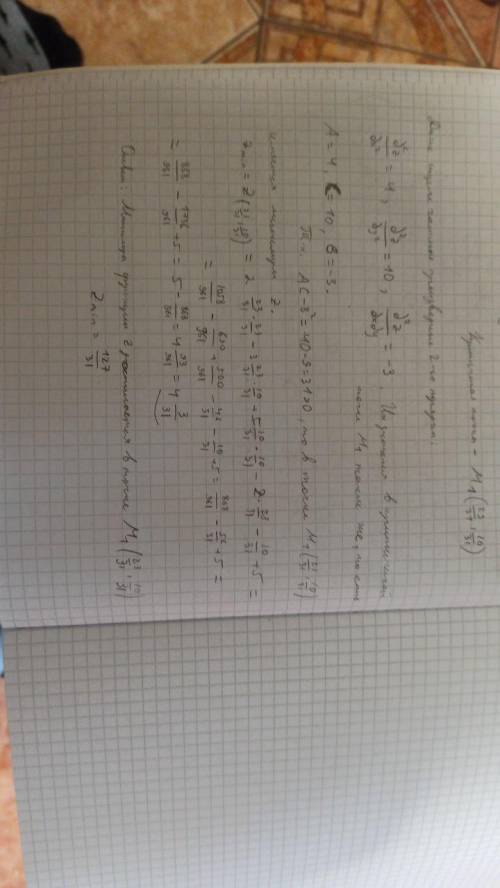 Критическая точка – M₁(23/31; 10/31)
Далее ищем частные производные 2-го порядка:
∂²z/∂x² = 4, ∂²z/∂y² = 10, ∂²z/∂x∂y = -3. Их значения в критической
точке M₁ такие же, то есть
A = 4, C = 10, B = -3.
Т.к. AC - B² = 40 - 9 = 31 > 0, то в точке M₁(23/31; 10/31)
имеется минимум z.
z min = z(23/31; 10/31) = 2 · 23/31 · 23/31 - 3 · 23/31 · 10/31 + 5 · 10/31 · 10/31 - 2 · 23/31 - 10/31 + 5 =
= 1058/961 - 690/961 + 500/961 - 46/31 - 10/31 + 5 = 868/961 - 56/31 + 5 =
= 868/961 - 1736/961 + 5 = 5 - 868/961 = 4 93/961 = 4 3/31
Ответ: Минимум функции z достигается в точке M₁(23/31; 10/31)
z min = 127/31